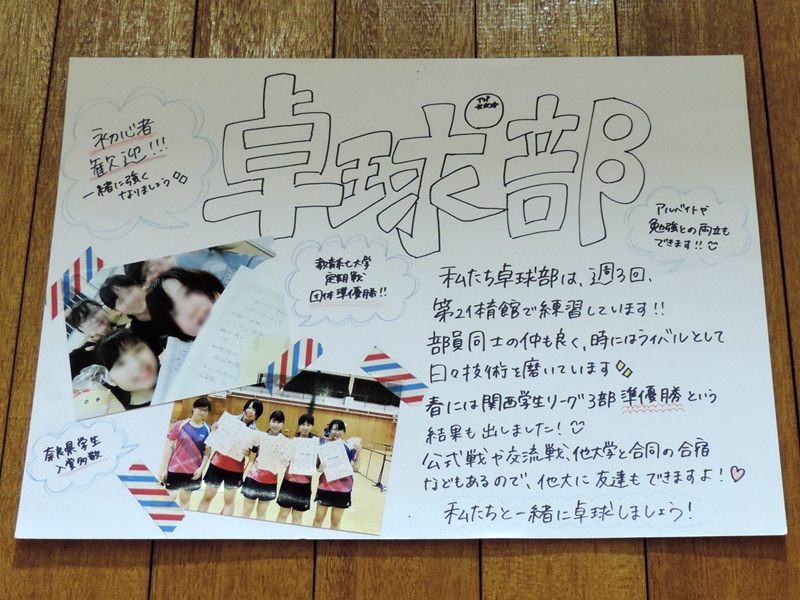 卓球部
初心者
歓迎!!!
一緒に強く
なりましょう
アルバイトや
勉強との両立も
できます!!
教育系七大学
定期戦
団体準優勝!!
私たち卓球部は、週3回、
第2体育館で練習しています!!
部員同士の仲も良く、時にはライバルとして
日々技術を磨いています
春には関西学生リーグ3部準優勝という
結果も出しました!
公式戦や交流戦、他大学と合同の合宿
などもあるので、他大に友達もできますよ!
私たちと一緒に卓球しましょう!
奈良県学生
入賞多数